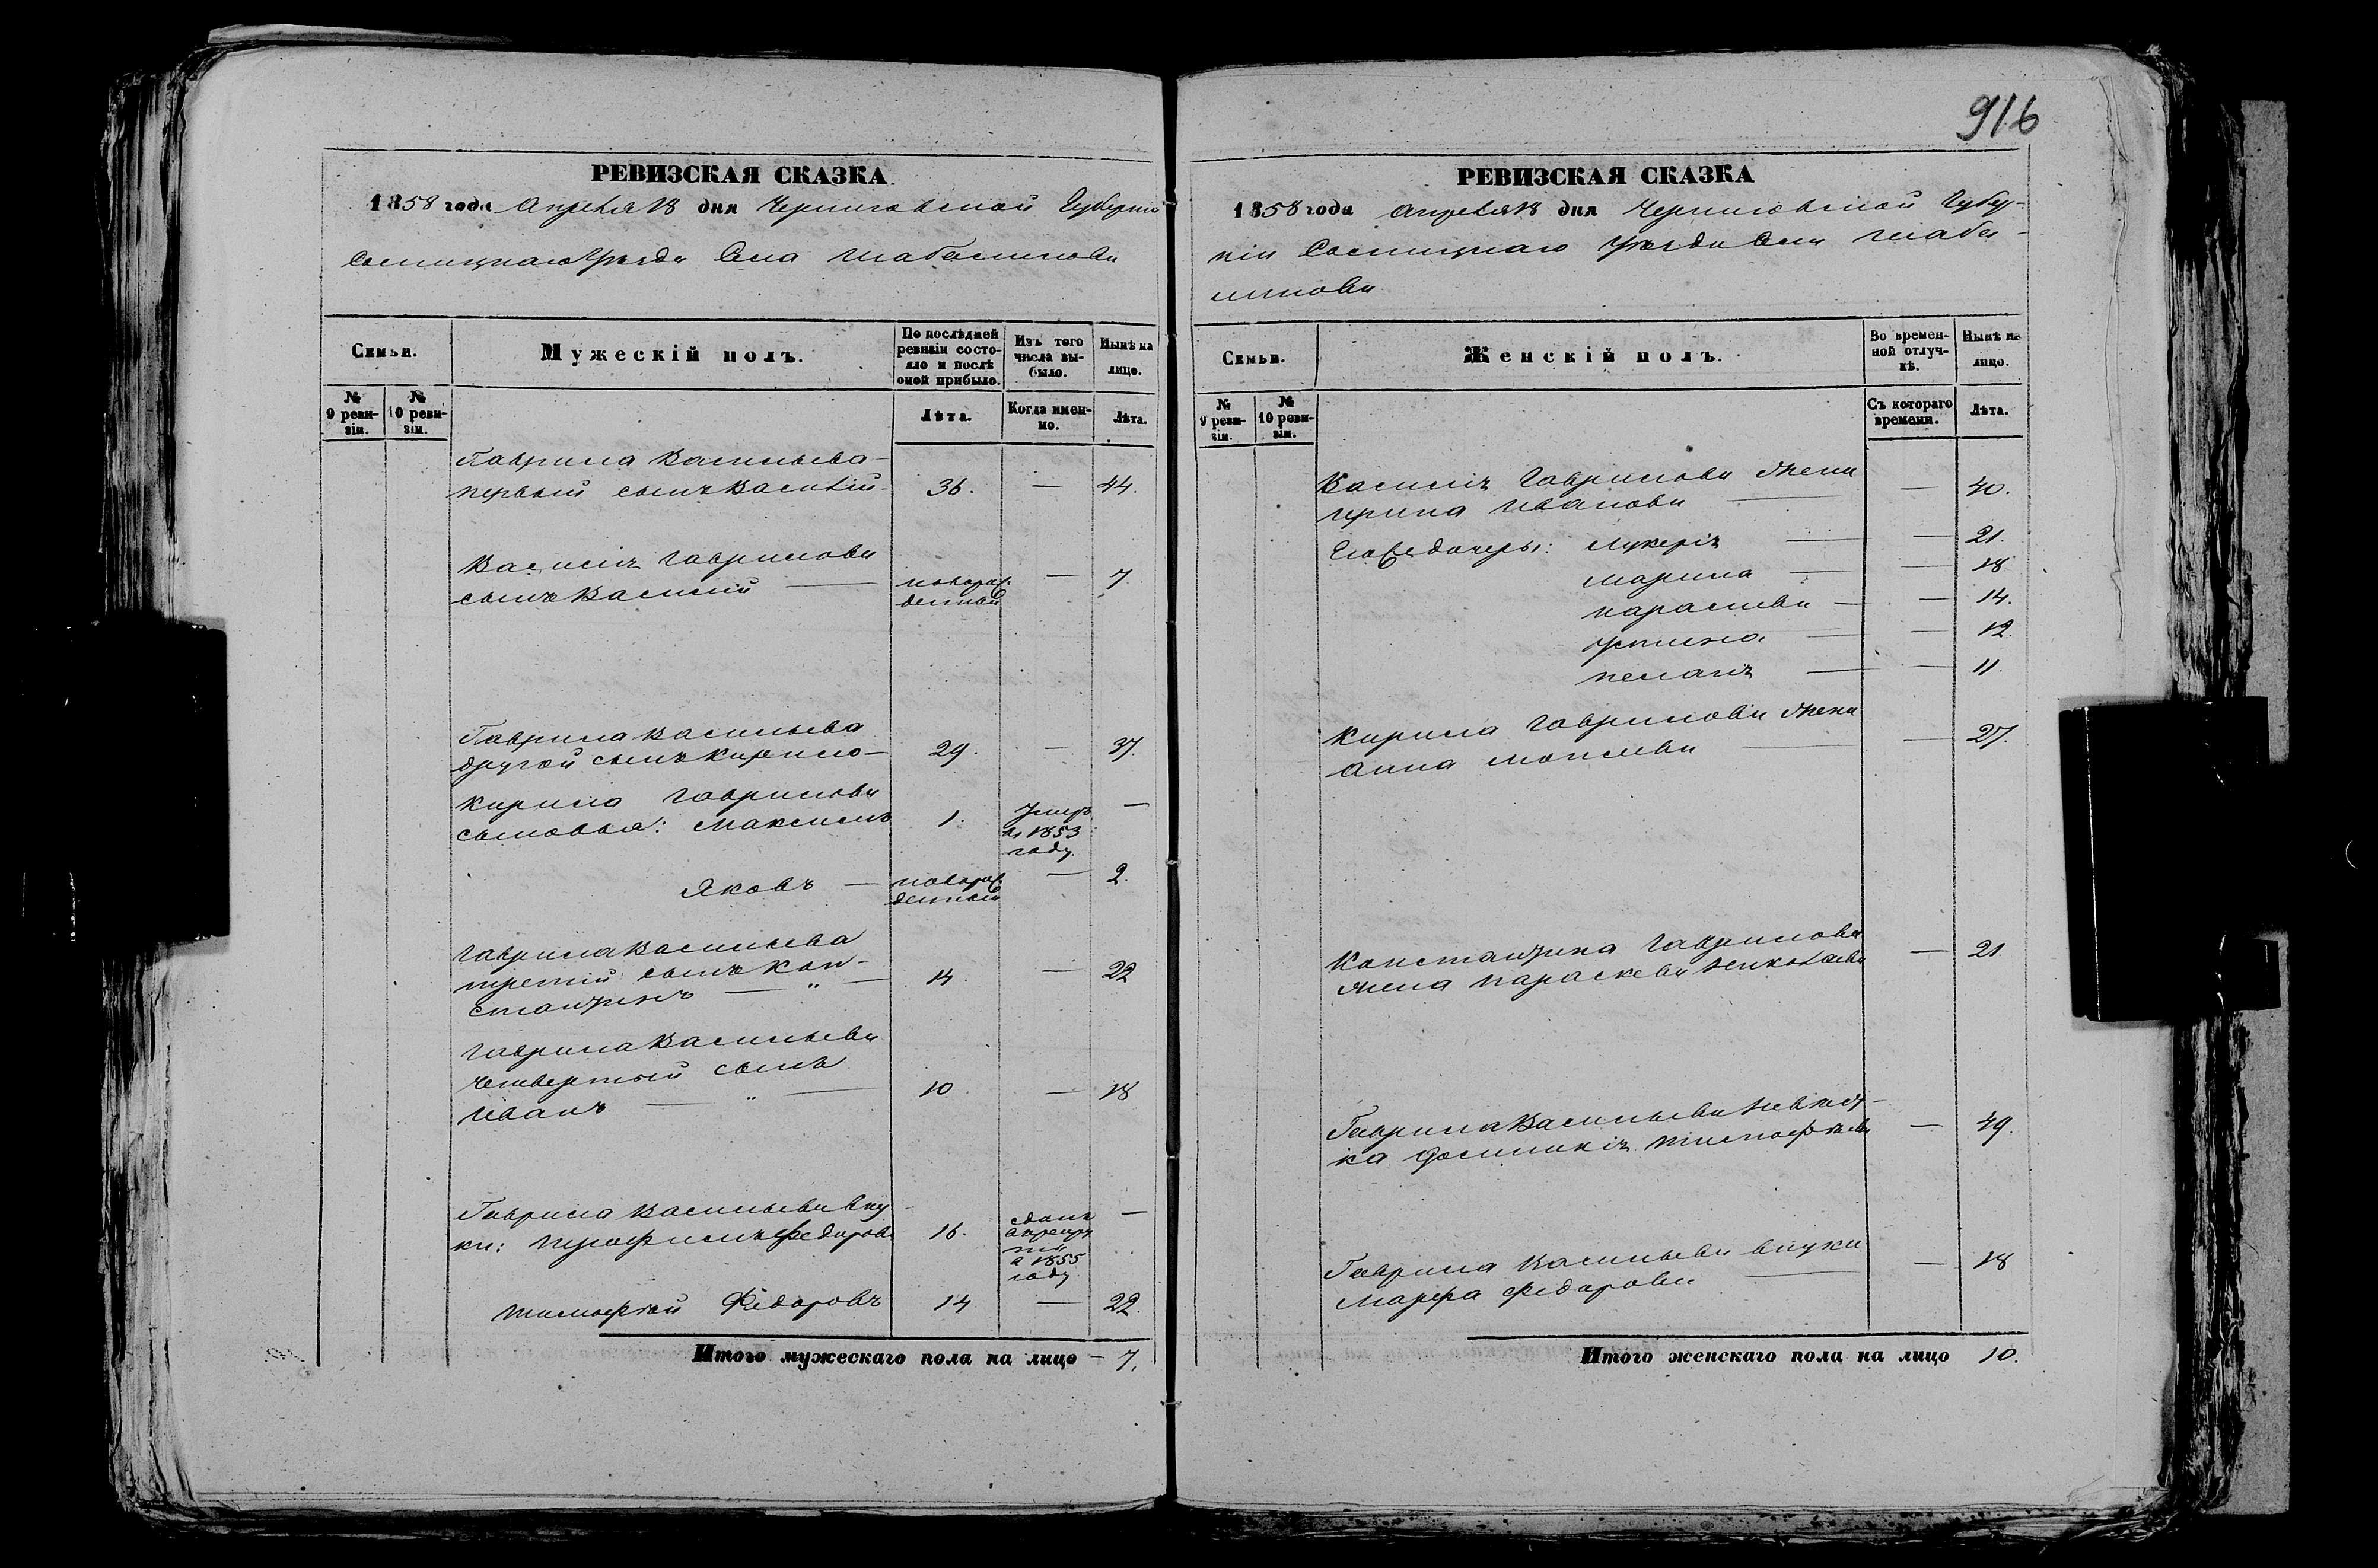 916
РЕВИЗСКАЯ СКАЗКА
1858 года Апреля 18 дня Черниговской Губернiи
Сосницкаго Уезда Села Шабалинова
Семьи.
Мужескiй полъ.
По послѣдней ревизiи состояло и послѣ оной прибыло.
Изъ того числа выбыло.
Нынѣ на лицо.
№ 9 ревизiи.
№ 10 ревизiи.
Лѣта.
Когда именно.
Лѣта.
Гаврила Васильева
первый сынъ Василiй 36. — 44.
Василiя Гаврилова
сынъ Василiй — новорожденный — 7
Гаврила Васильева
другой сынъ Кирило — 29. — 37.
Кирила Гаврилова
сыновья: Максимъ 1. Умеръ въ 1853 году. —
Яковъ — новорожденный — 2.
Гаврила Васильева
третiй сынъ Кон-
стантинъ — „ — 14. — 22
Гаврила Васильева
четвертый сынъ
Иванъ — „ — 10 — 18
Гаврила Васильева вну-
ки: Трофимъ Федоровъ 16. сданъ в рекруты в 1855 году —
Тимофей Федоровъ 14 — 22.
Итого мужескаго пола на лицо — 7.
РЕВИЗСКАЯ СКАЗКА
1858 года Апреля 18 дня Черниговской Губер-
нiи Сосницкаго Уезда Села Шаба-
линова
Семьи.
Женскiй полъ.
Во временной отлучкѣ.
Нынѣ на лицо.
№ 9 ревизiи.
№ 10 ревизiи.
Съ котораго времени.
Лѣта.
Василiя Гаврилова жена
Ирина Иванова — — 40.
Его дочеры: Лукерiя — — 21.
Марина — — 18
Параскева — — 14.
Устина — — 12.
Пелагiя — — 11
Кирила Гаврилова жена
Анна Моисеева — — 27.
Константина Гаврилова
жена Параскева Николаева — 21
Гаврила Васильева невѣст-
ка Фомимiя Тимофѣева — 49.
Гаврила Васильева внука
Марфа Федорова — — 18
Итого женскаго пола на лицо 10.